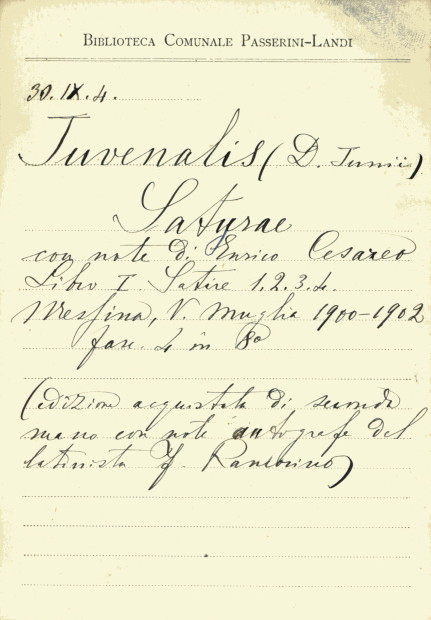 BIBLIOTECA COMUNALE PASSERINI-LANDI
30.IX.4.
Juvenalis (D. Junii)
Satyrae
con note di Enrico Cesareo
Libro I Satire 1.2.3.4.
Messina, V. Muglia 1900-1902
fasc. 4 in 8º
(edizione acquistata di seconda
mano con note autografe del
latinista F.